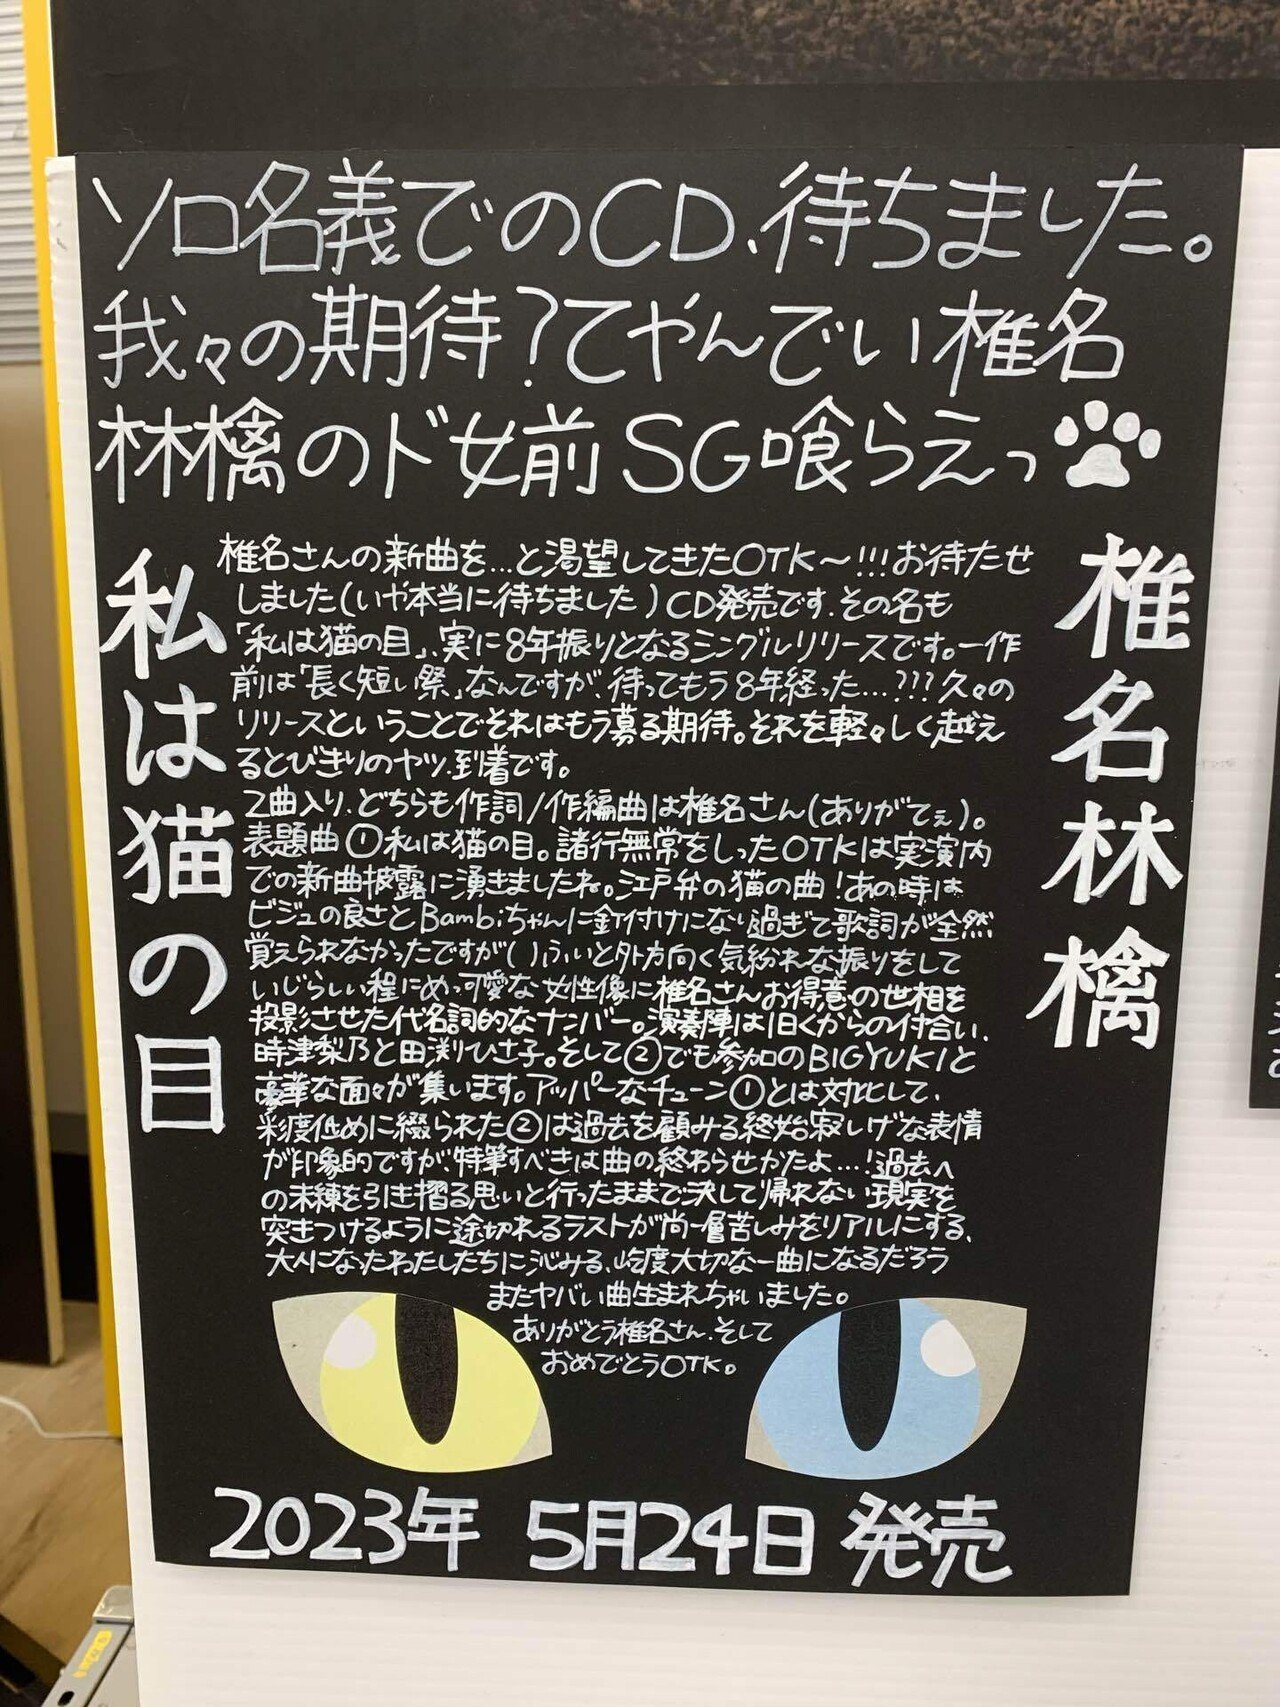 ソロ名義でのCD、待ちました。
我々の期待?てやんでい椎名
林檎のド女前SG喰らえっ
私は猫の目
椎名林檎
椎名さんの新曲を…と渇望してきたOTK〜!!!お待たせ
しました(いや本当に待ちました)CD発売です。その名も
「私は猫の目」、実に8年振りとなるシングルリリースです。一作
前は「長く短い祭」なんですが、待ってもう8年経った…???久々の
リリースということでそれはもう募る期待。それを軽々しく越え
るとびきりのヤツ、到着です。
2曲入り、どちらも作詞/作編曲は椎名さん(ありがてぇ)。
表題曲①私は猫の目。諸行無常をしったOTKは実演内
での新曲披露に湧きましたね。江戸弁の猫の曲!あの時は
ビジュの良さとBambiちゃんに釘付けになり過ぎて歌詞が全然
覚えられなかったですが()ふいと外方向く気紛れな振りをして
いじらしい程にめっ可愛な女性像に椎名さんお得意の世相を
投影させた代名詞的なナンバー。演奏陣は旧くからの付合い、
時津梨乃と田渕ひさ子。そして②でも参加のBIGYUKIと
豪華な面々が集います。アッパーなチューン①とは対比して、
彩度低めに綴られた②は過去を顧みる終始寂しげな表情
が印象的ですが、特筆すべきは曲の終わらせかたよ…!過去へ
の未練を引き摺る思いと行ったままで決して帰れない現実を
突きつけるように途切れるラストが尚一層苦しみをリアルにする、
大人になったわたしたちに沁みる、屹度大切な一曲になるだろう
またヤバい曲生まれちゃいました。
ありがとう椎名さん、そして
おめでとうOTK。
2023年 5月24日 発売